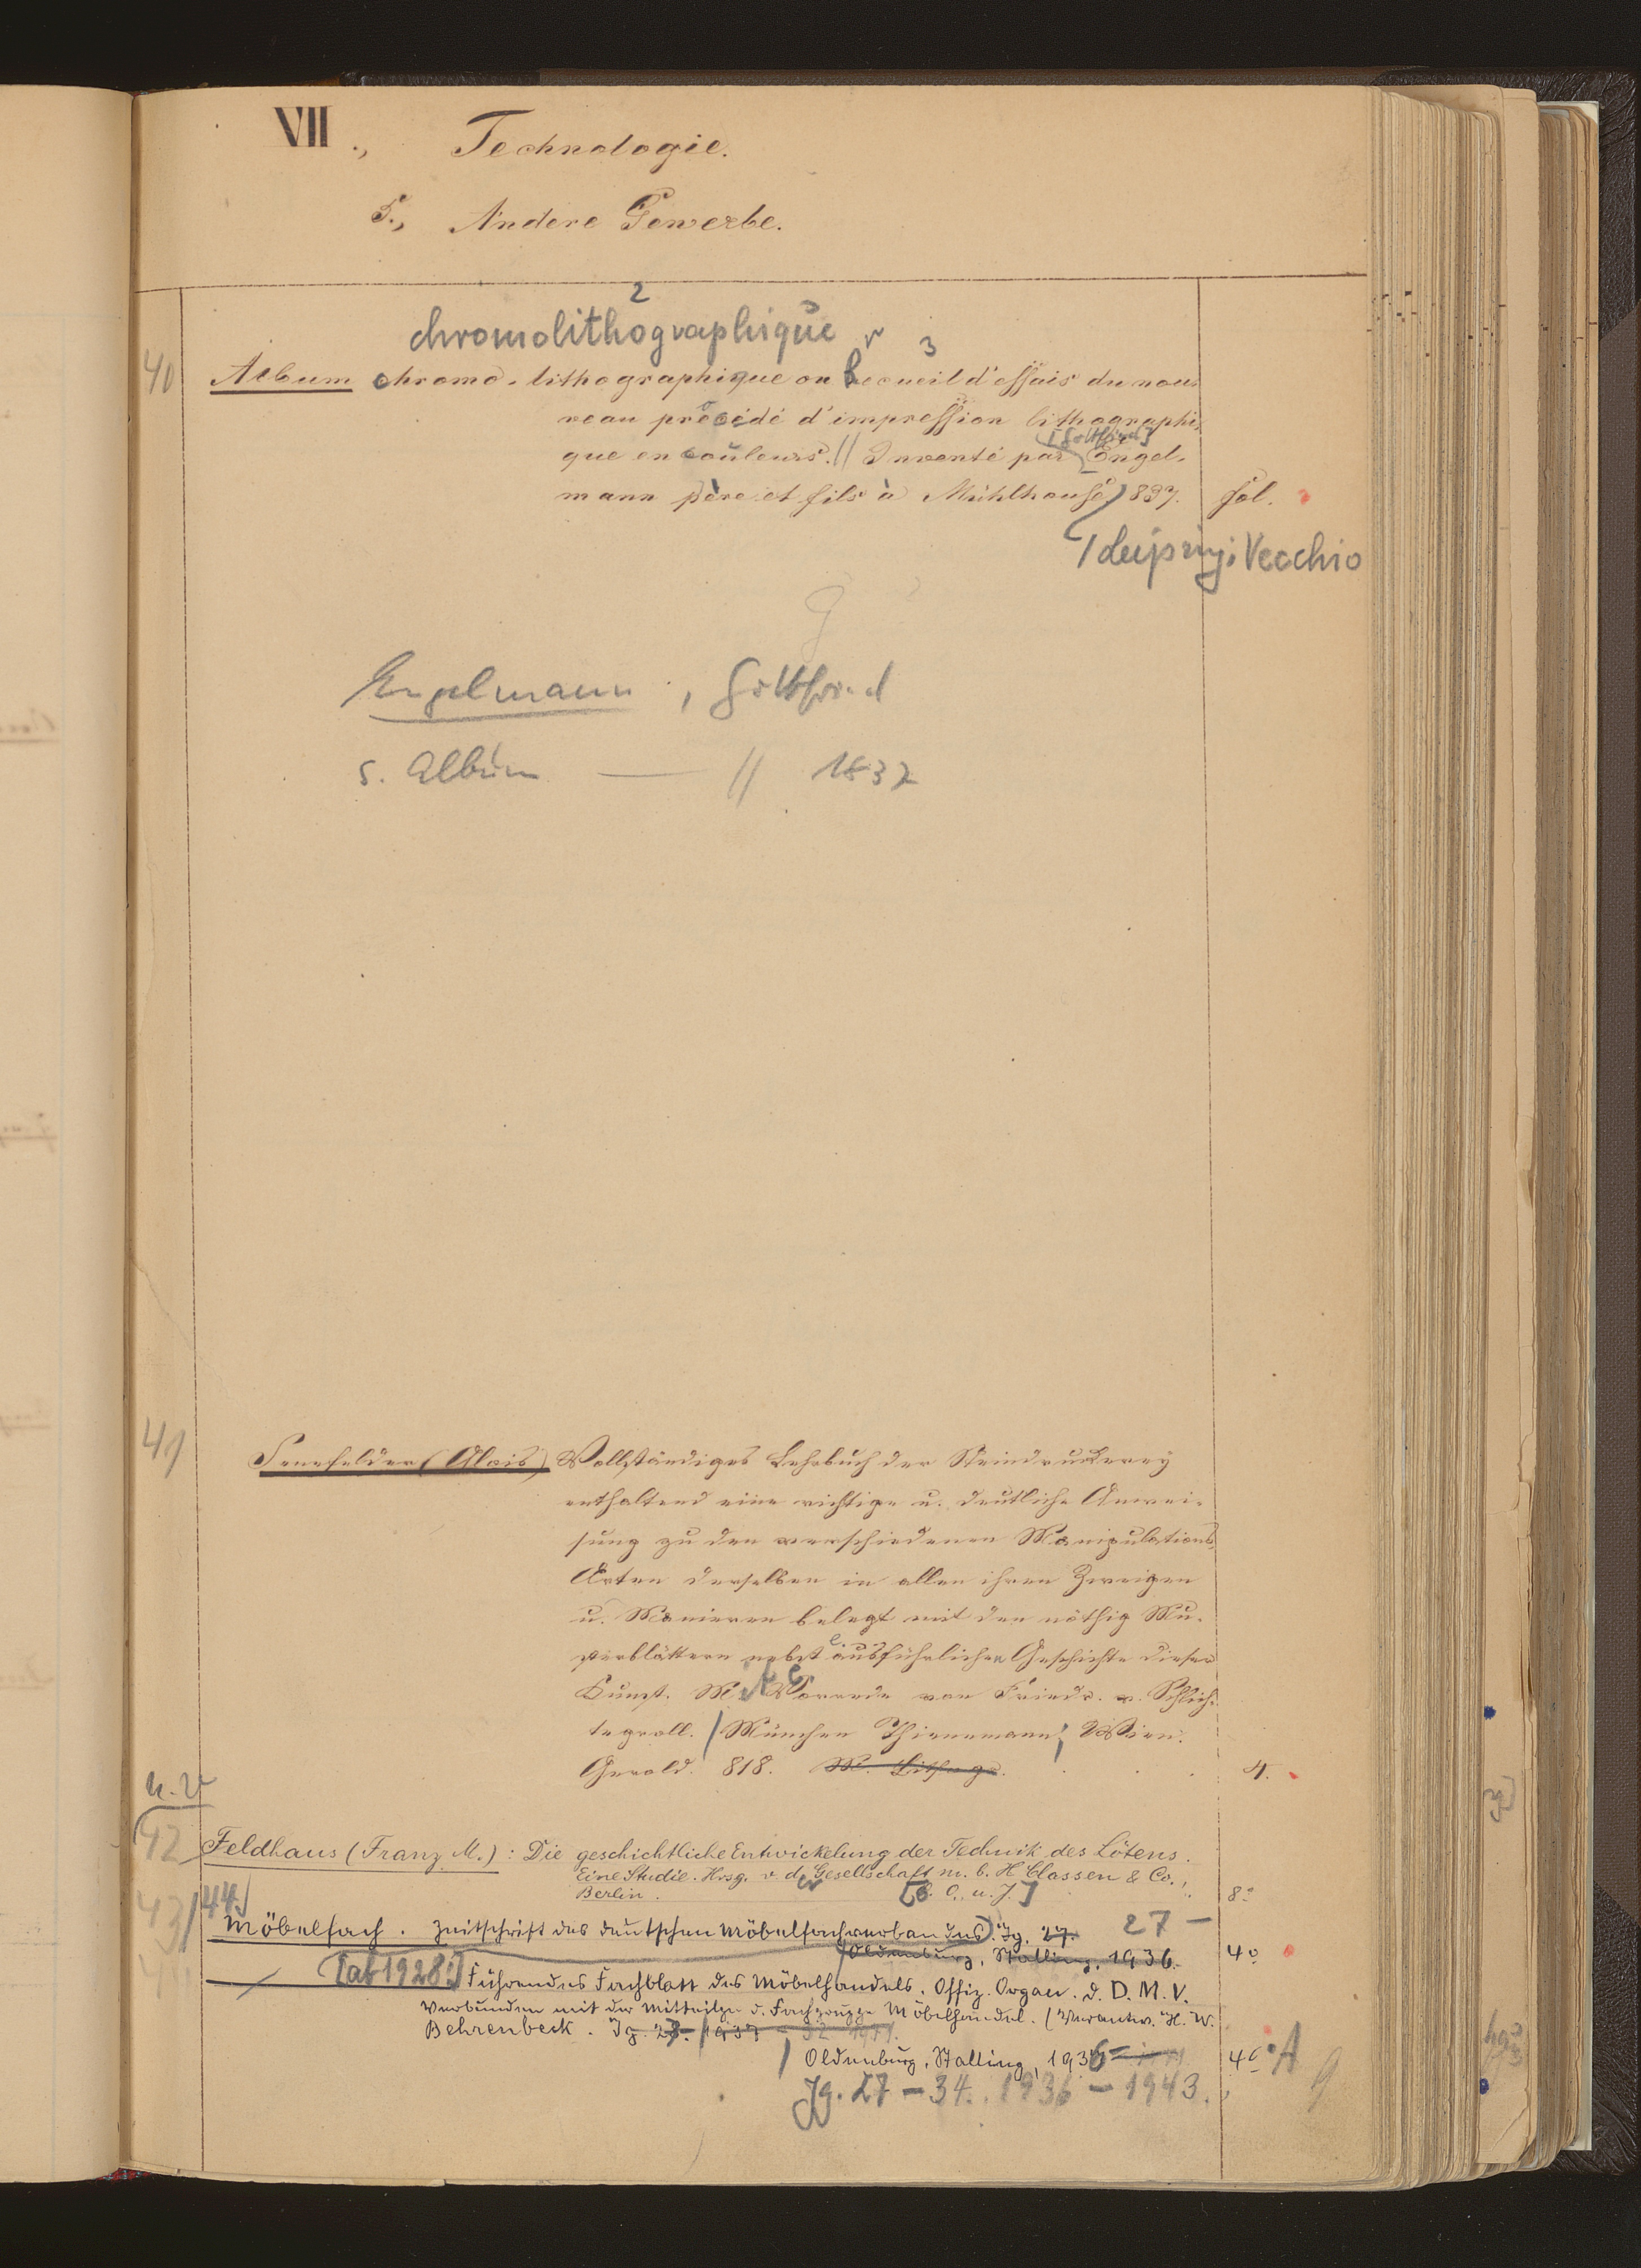 VII., Technologie.
5., Andere Gewerbe.
2
chromolithographique
3
40 Album chromo-lithographique ou Recueil d'essais du nou-
veau procédé d'impression lithographi-
[Gottfried]
que en couleurs. // Inventé par Engel-
mann père et fils à Mühlhouse 837. fol.
/ Leipzig: Vecchio
Engelmann, Gottfried
s. Album — // 1837
41 Senefelder (Alois) Vollständiges Lehrbuch der Steindruckerey
enthaltend eine richtige u. deutliche Anwei-
sung zu den verschiedenen Manipulations-
Arten derselben in allen ihren Zweigen
u. Manieren belegt mit den nöthig Mu-
sterblättern nebst e. ausführlichen Geschichte dieser
Kunst. Mit e. Vorrede von Friedr. v. Schlich-
tegroll. / München Thienemann; Wien:
Gerold. 818. M. Lithogr. 4.
42 Feldhaus (Franz M.): Die geschichtliche Entwickelung der Technik des Lötens.
Eine Studie. Hrsg. v. der Gesellschaft m. b. H. Classen & Co.,
Berlin. [O. O. u. J.] 8°
43/44 Möbelfach. Zeitschrift des deutschen Möbelfachverbandes. Jg. 27. 27 —
/Oldenburg, Stalling, 1936. 4°
— [ab 1928:] Führendes Fachblatt des Möbelhandels. Offiz. Organ. d. D. M. V.
Verbunden mit der Mitteilgn d. Fachgruppe Möbelhandel. (Verantw. H. W.
Behrenbeck. Jg. 28. / 1937
/ Oldenburg, Stalling, 1936 — 4° A
Jg. 27 — 34. 1936 — 1943.